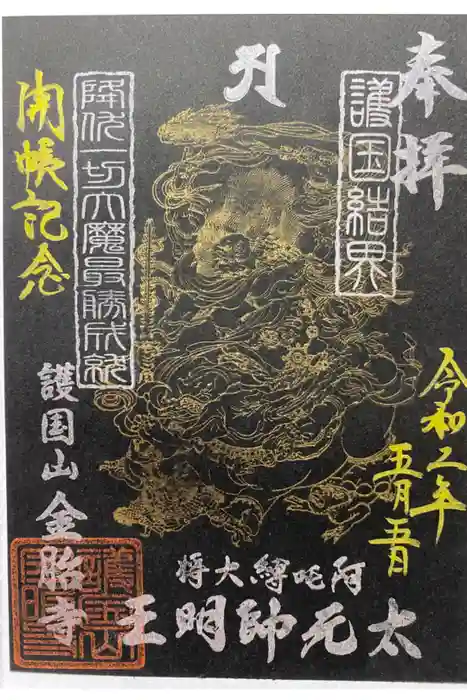 奉拝
令和二年
五月五日
護国結界
降伏一切大魔最勝成就
開帳記念
阿吒縛大将
太元帥明王
護国山金胎寺